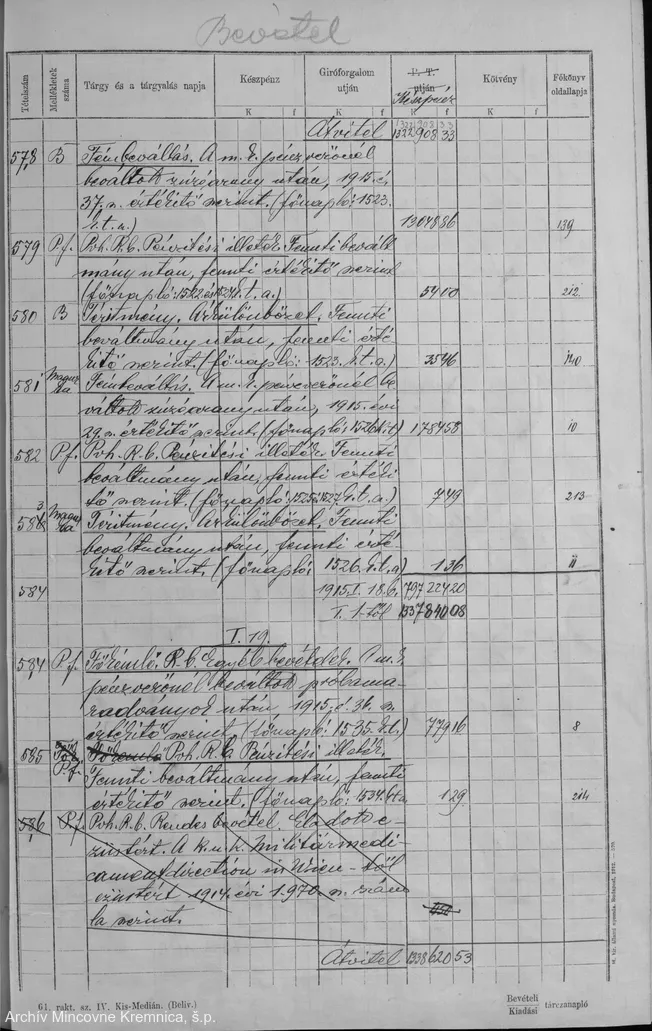 Bevétel
Tételszám
Mellékletek száma
Tárgy és a tárgyalás napja
Készpénz
Giróforgalom utján
P. T. utján
Készpénz
Kötvény
Főkönyv oldallapja
K f K f K f K f
Átvitel 1322908 33
578 B Fémbeváltás. A m. k. pénzverőnél
beváltott színarany után, 1915. é.
37. sz. értékítő szerint. (főnapló: 1523.
k. t. a.) 13048 86 139
579 P.f. Poh. R.b. Pénzítési illeték. Fennti bevált
mány után, fennti értékítő szerint
(főnapló: 1522 és 1524 k.t.a.) 54 00 212.
580 B Térítmény. Árkülönbözet. Fennti
beváltmány után, fennti érté-
kítő szerint. (főnapló: 1523. k.t.a.) 35 46 140
581 Fémbeváltás. A m. k. pénzverőnél be
váltott színarany után, 1915. évi
29. sz. értékítő szerint. (főnapló: 1526 k.t.a.) 1784 58 10
582 P.f. Poh. R.b. Pénzítési illeték. Fennti
beváltmány után, fennti értékí
tő szerint. (főnapló: 1525 1527 k.t.a.) 7 49 213
583 Térítmény. Árkülönbözet. Fennti
beváltmány után, fennti érté-
kítő szerint. (főnapló: 1526. k.t.a.) 1 36 11
584 1915. I. 18. 797224 20
I. 1-től 1337840 08
I. 19.
584 P.f. Főkémlő. R.b. Egyéb bevételek. A m. k.
pénzverőnél beváltott próbama-
radványok után 1915. é. 36. sz.
értékítő szerint. (főnapló: 1535. k.t.) 779 16 8
585 P.f. Főkémlő Poh. R.b. Pénzítési illeték.
Fennti beváltmány után, fennti
értékítő szerint. (főnapló: 1534. k.t.a. 1 29 214
586 P.f. Poh. R.b. Rendes bevétel. Eladott e-
züstért. A k. u. k. Militärmedi-
camentdirection in Wien-től
ezüstért 1914. évi 1.970 sz. szám
la szerint.
Átvitel 1338620 53
61. rakt. sz. IV. Kis-Medián. (Beliv.)
Bevételi
Kiadási tárczanapló
M. kir. állami nyomda. Budapest, 1912.
Archív Mincovne Kremnica, š.p.